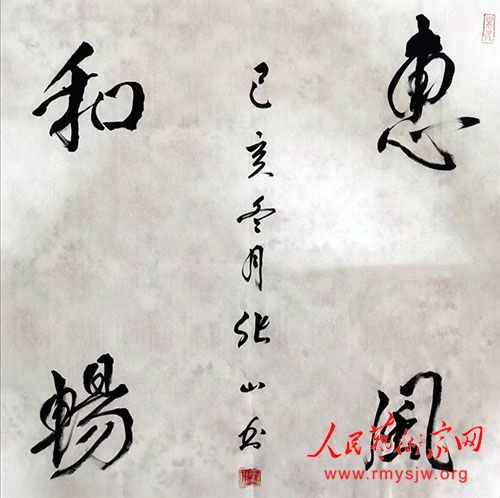 惠風
己亥冬月张山书
和暢
人民藝術家网
www.rmysjw.org